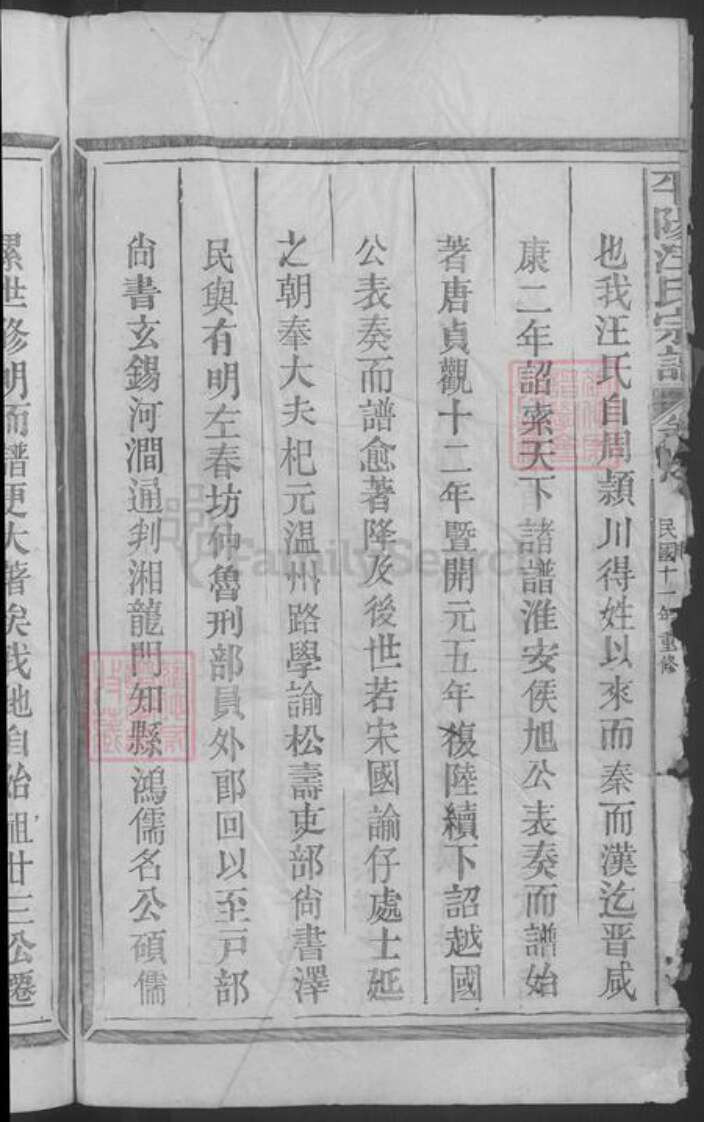 平陽汪氏宗譜
民國十一年重修
也我汪氏自周潁川得姓以來而秦而漢迄晋咸
康二年詔索天下諸譜淮安侯旭公表奏而譜始
著唐貞觀十二年暨開元五年複陸續下詔越國
公表奏而譜愈著降及後世若宋國諭仔處士延
之朝奉大夫杞元温州路學諭松壽吏部尚書澤
民與有明左春坊仲魯刑部員外郎回以至戸部
尚書玄錫河澗通判湘龍門知縣鴻儒名公碩儒
累世修明而譜更大著矣我地自始祖廿三公遷
FamilySearch